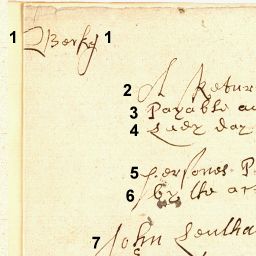 1 Berks 1
2 A Retur
3 Payable a
4 Lady day
5 persones P
6 by the ac
7 John Lentha